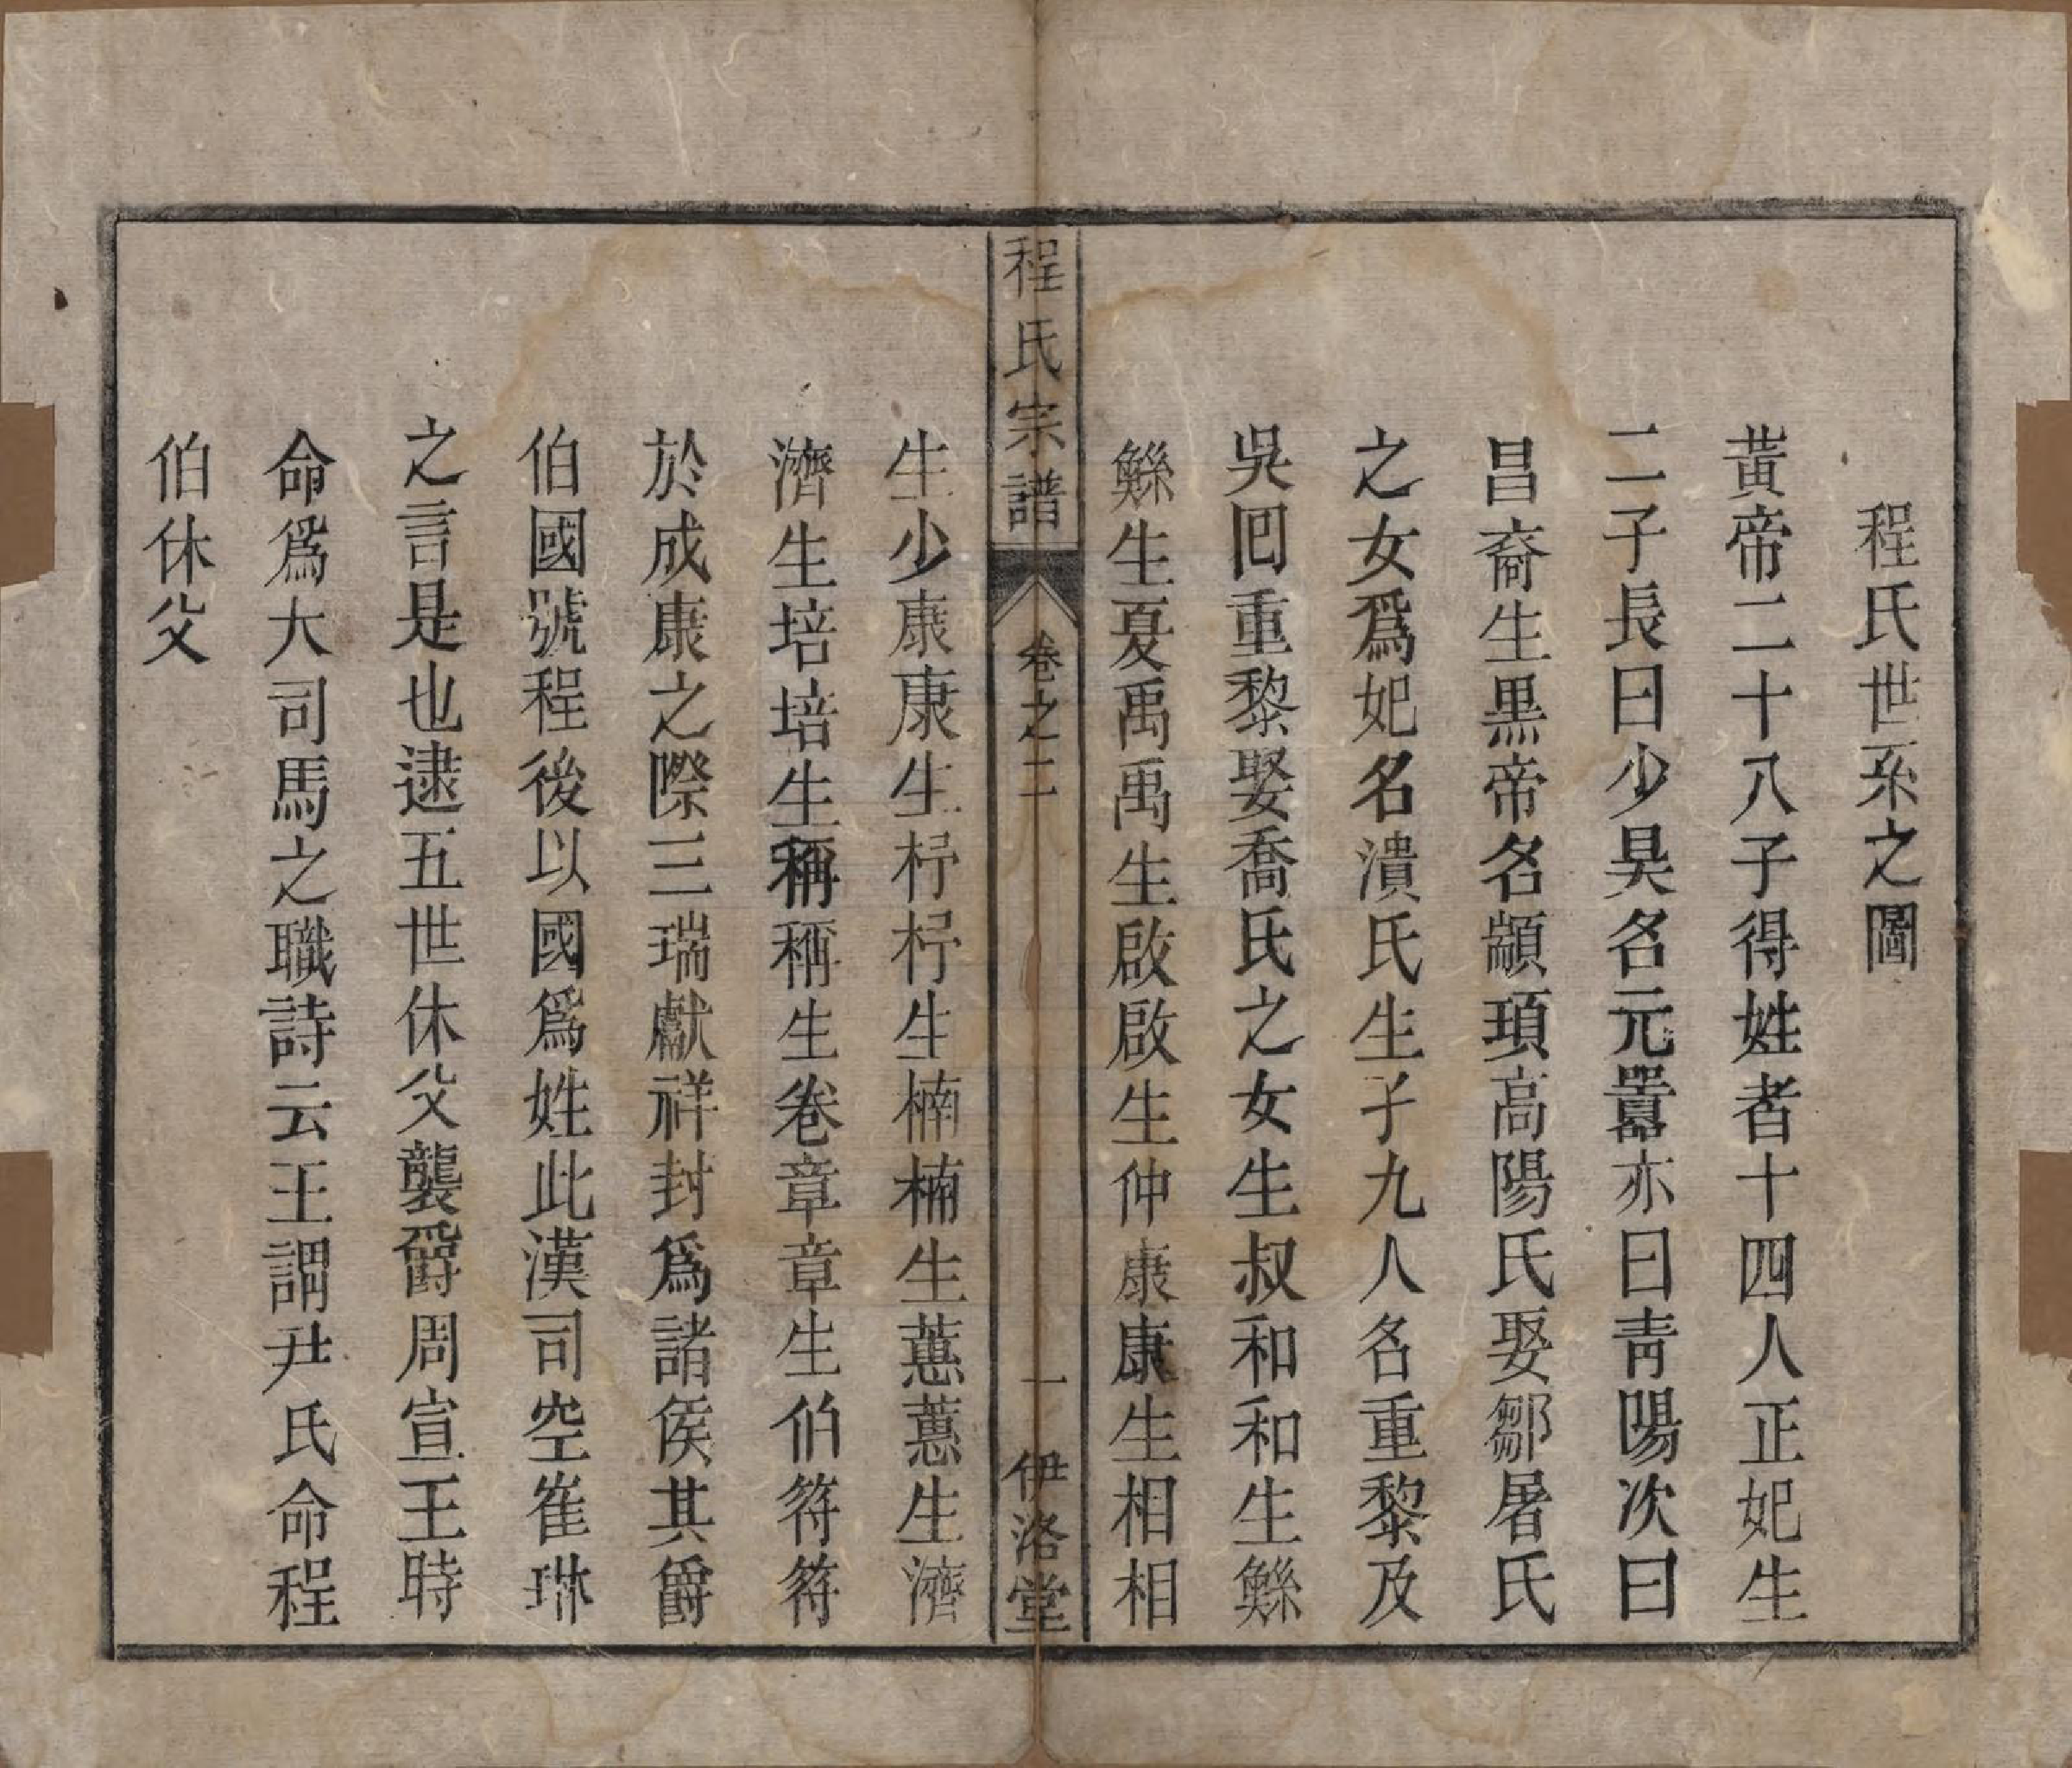 程氏世系之圖
黃帝二十八子得姓者十四人正妃生
二子長曰少昊名元囂亦曰青陽次曰
昌裔生黑帝名顓頊高陽氏娶鄒屠氏
之女爲妃名潰氏生子九人名重黎及
吳回重黎娶喬氏之女生叔和和生鯀
鯀生夏禹禹生啟啟生仲康康生相相
程氏宗譜 卷之二 一 伊洛堂
生少康康生杼杼生楠楠生藼藼生濟
濟生培培生稱稱生卷章章生伯符符
於成康之際三瑞獻祥封爲諸侯其爵
伯國號程後以國爲姓此漢司空崔琳
之言是也逮五世休父襲爵周宣王時
命爲大司馬之職詩云王謂尹氏命程
伯休父